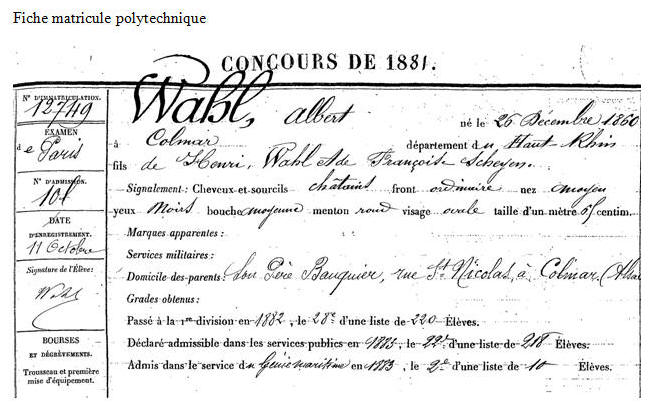 Fiche matricule polytechnique
CONCOURS DE 1881.
N° D'IMMATRICULATION.
12749
EXAMEN
de Paris
N° D'ADMISSION.
101
DATE
D'ENREGISTREMENT.
11 Octobre
Signature de l'Élève:
Wahl
BOURSES
ET DÉGRÈVEMENTS.
Trousseau et première
mise d'équipement.
Wahl, Albert né le 26 Décembre 1860
à Colmar département du Haut-Rhin
fils de Henri, Wahl & de Françoise Scheyen.
Signalement: Cheveux-et-sourcils châtains front ordinaire nez moyen
yeux Noirs bouche moyenne menton rond visage ovale taille d'un mètre 65 centim.
Marques apparentes:
Services militaires:
Domicile des-parents: Son Père Banquier, rue St Nicolas, à Colmar
Grades obtenus:
Passé à la 1re division en 1882, le 28e d'une liste de 220 Élèves.
Déclaré admissible dans les services publics en 1883, le 22e d'une liste de 218 Élèves.
Admis dans le service du Génie maritime en 1883, le 2e d'une liste de 10 Élèves.